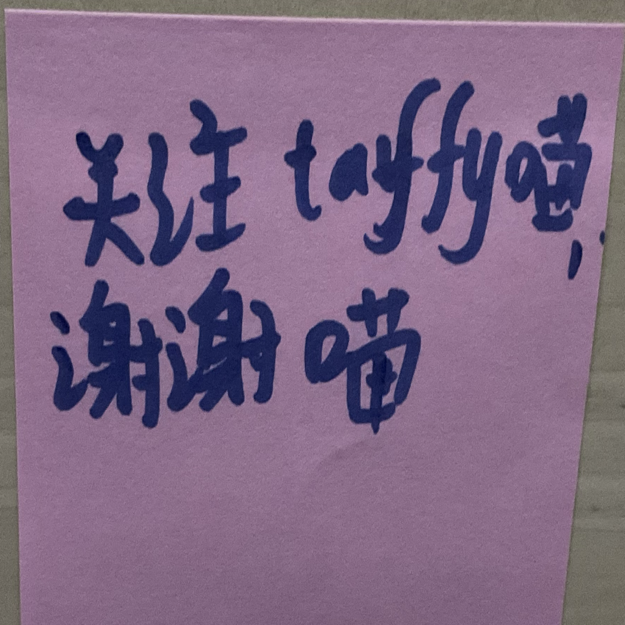 关注taffy喵,
谢谢喵